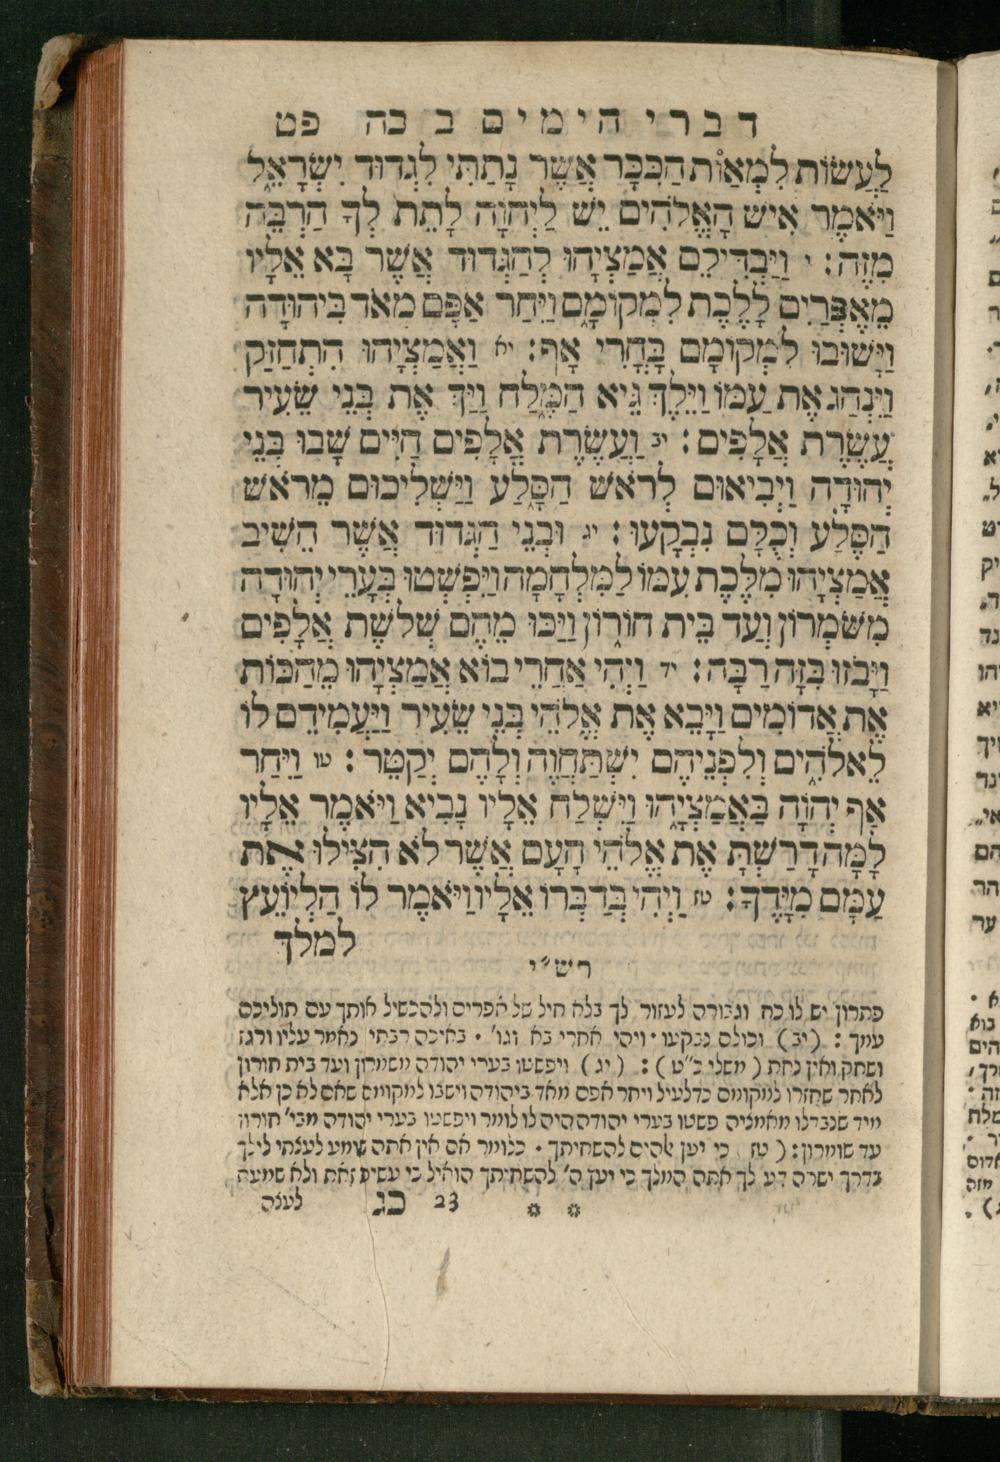 דברי הימים ב כה פט
לַעֲשׂוֹת לִמְאַת הַכִּכָּר אֲשֶׁר נָתַתִּי לִגְדוּד יִשְׂרָאֵל
וַיֹּאמֶר אִישׁ הָאֱלֹהִים יֵשׁ לַיהוָֹה לָתֶת לְךָ הַרְבֵּה
מִזֶּה: י וַיַּבְדִּילֵם אֲמַצְיָהוּ לְהַגְּדוּד אֲשֶׁר בָּא אֵלָיו
מֵאֶפְרַיִם לָלֶכֶת לִמְקוֹמָם וַיִּחַר אַפָּם מְאֹד בִּיהוּדָה
וַיָּשׁוּבוּ לִמְקוֹמָם בָּחֳרִי אָף: יא וַאֲמַצְיָהוּ הִתְחַזַּק
וַיִּנְהַג אֶת עַמּוֹ וַיֵּלֶךְ גֵּיא הַמֶּלַח וַיַּךְ אֶת בְּנֵי שֵׂעִיר
עֲשֶׂרֶת אֲלָפִים: יב וַעֲשֶׂרֶת אֲלָפִים חַיִּים שָׁבוּ בְּנֵי
יְהוּדָה וַיְבִיאוּם לְרֹאשׁ הַסָּלַע וַיַּשְׁלִיכוּם מֵרֹאשׁ
הַסֶּלַע וְכֻלָּם נִבְקָעוּ: יג וּבְנֵי הַגְּדוּד אֲשֶׁר הֵשִׁיב
אֲמַצְיָהוּ מִלֶּכֶת עִמּוֹ לַמִּלְחָמָה וַיִּפְשְׁטוּ בְּעָרֵי יְהוּדָה
מִשֹּׁמְרוֹן וְעַד בֵּית חוֹרוֹן וַיַּכּוּ מֵהֶם שְׁלֹשֶׁת אֲלָפִים
וַיָּבֹזוּ בִּזָּה רַבָּה: יד וַיְהִי אַחֲרֵי בוֹא אֲמַצְיָהוּ מֵהַכּוֹת
אֶת אֲדוֹמִים וַיָּבֵא אֶת אֱלֹהֵי בְּנֵי שֵׂעִיר וַיַּעֲמִידֵם לוֹ
לֵאלֹהִים וְלִפְנֵיהֶם יִשְׁתַּחֲוֶה וְלָהֶם יְקַטֵּר: טו וַיִּחַר
אַף יְהוָֹה בַּאֲמַצְיָהוּ וַיִּשְׁלַח אֵלָיו נָבִיא וַיֹּאמֶר אֵלָיו
לָמָּה דָרַשְׁתָּ אֶת אֱלֹהֵי הָעָם אֲשֶׁר לֹא הִצִּילוּ אֶת
עַמָּם מִיָּדֶךָ: טז וַיְהִי בְּדַבְּרוֹ אֵלָיו וַיֹּאמֶר לוֹ הַלְיוֹעֵץ
למלך
רש״י
פתרון יש לו כח וגבורה לעזור לך בלא חיל של אפרים ולהכשיל אותך עם תוליכם
עמך: (יב) וכולם נבקעו. ויהי אחרי בא וגו'. באיכה רבתי נאמר עליו ורגז
ושחק ואין נחת (משלי כ״ט): (יג) ויפשטו בערי יהודה משמרון ועד בית חורון
לאחר שחזרו למקומם כדלעיל ויחר אפם מאד ביהודה וישבו למקומם שאם לא כן אלא
מיד שנבדלו מאמציה פשטו בערי יהודה היה לו לומר ויפשטו בערי יהודה מבי' חורון
עד שומרון: (טז) כי יעץ אלהים להשחיתך. כלומר אם אין אתה שומע לעצתי לילך
בדרך ישרה דע לך אתה המלך כי יעץ ה' להשחיתך הואיל כי עשית זאת ולא שמעת
כג 23 לעצה